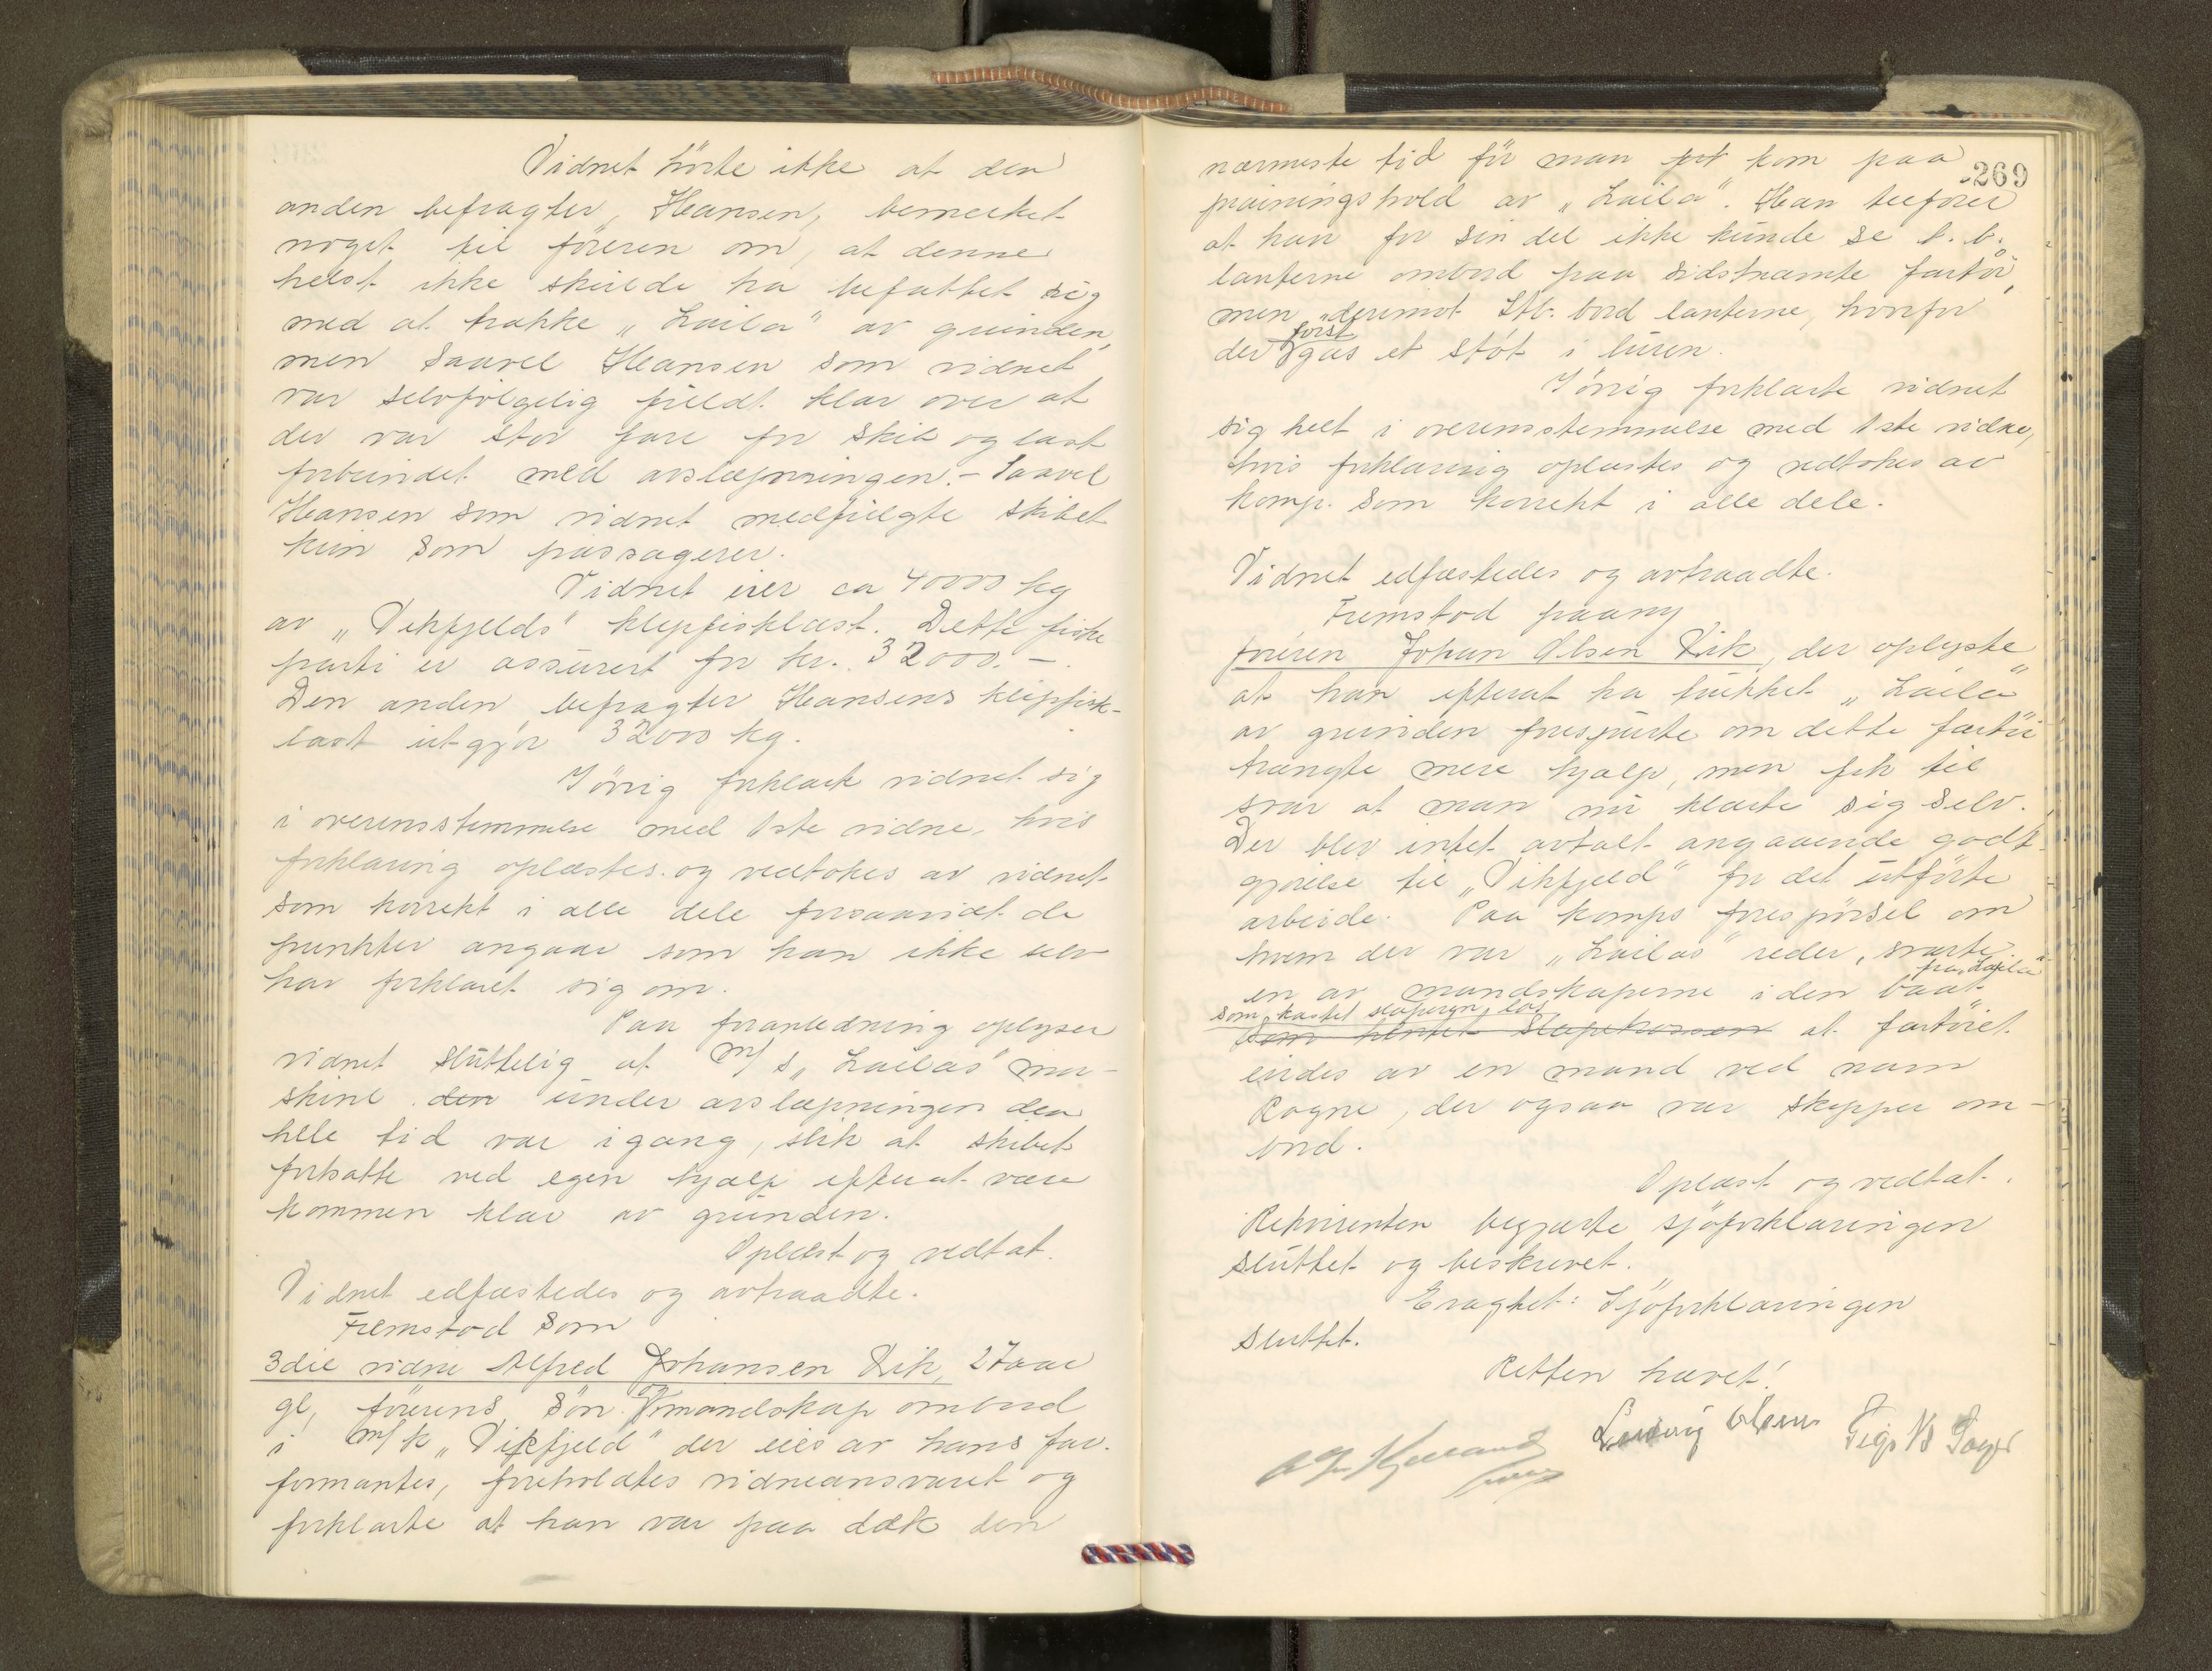 Vidnet hörte ikke at den
anden befragter, Hansen, bemerket
noget til föreren om, at denne
helst ikke skulde ha befattet sig
med at trække „Laila" av grunden,
men saavel Hansen som vidnet
var selvfölgelig fuldt klar over at
der var stor fare for skib og last
forbundet med avslæpningen. - Saavel
Hansen som vidnet medfulgte skibet
kun som passagerer.
Vidnet eier ca 40000 kg
av „Vikfjelds" klepfisklast. Dette fiske
parti er assurert for kr. 32000.-.
Den anden befragter Hansens klipfisk-
last utgjör 32000 kg.
Iövrig forklarte vidnet sig
i overensstemmelse med 1ste vidne, hvis
forklaring oplæstes og vedtokes av vidnet
som korrekt i alle dele forsaavidt de
punkter angaar som han ikke selv
har forklaret sig om.
Paa foranledning oplyser
vidnet sluttelig at m/s „Lailas" ma-
skine den under avslæpningen den
hele tid var igang, slik at skibet
fortsatte ved egen hjælp efterat være
kommen klar av grunden.
Oplæst og vedtat.
Vidnet edfæstedes og avtraadte.
Fremstod som
3die vidne Alfred Johansen Vik, 27 aar
gl, förerens sön og mandskap ombord
i m/k „Vikfjeld" der eies av hans far.
formantes, foreholdtes vidneansvaret og
forklarte at han var paa dæk den
269
nærmeste tid för man kom paa
prainingshold av „Laila". Han tilföier
at han for sin del ikke kunde se b.b.
lanterne ombord paa sidstnæmte fartöi,
men derimot Stb. bord lanterne, hvorfor
först
der gas et stöt i luren.
Iövrig forklarte vidnet
sig helt i overensstemmelse med 1ste vidne,
hvis forklaring oplæstes og vedtokes av
komp. som korrekt i alle dele.
Vidnet edfæstedes og avtraadte.
Fremstod paany
föreren Johan Olsen Vik, der oplyste
at han efterat ha trukket „Laila"
av grunden forespurte om dette fartöi
trængte mere hjælp, men fik til
svar at man nu klarte sig selv.
Der blev intet avtalt angaaende godt-
gjörelse til „Vikfjeld" for det utförte
arbeide. Paa komps forespörsel om
hvem der var „Lailas" reder, svarte
fra „Laila"
en av mandskaperne i den baat
som kastet slæperen lös
som hentet slæpetrossen at fartöiet
eiedes av en mand ved navn
Rogne, der ogsaa var skipper om-
bord.
Oplæst og vedtat.
Rekvirenten begjærte sjöforklaringen
sluttet og beskrevet.
Eragtet: Sjöforklaringen
sluttet.
Retten hævet!
Ludvig Olsen